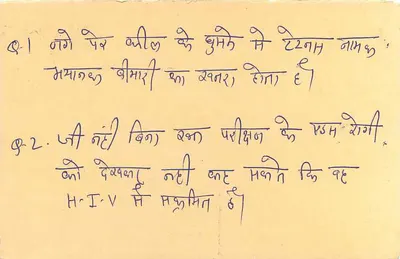 Q-1 नंगे पैर कील के चुभने से टेटनस नामक
भयानक बीमारी का खतरा होता है।
Q-2. जी नहीं बिना रक्त परीक्षण के एडस रोगी
को देखकर नहीं कह सकते कि वह
H-I-V से संक्रमित है।